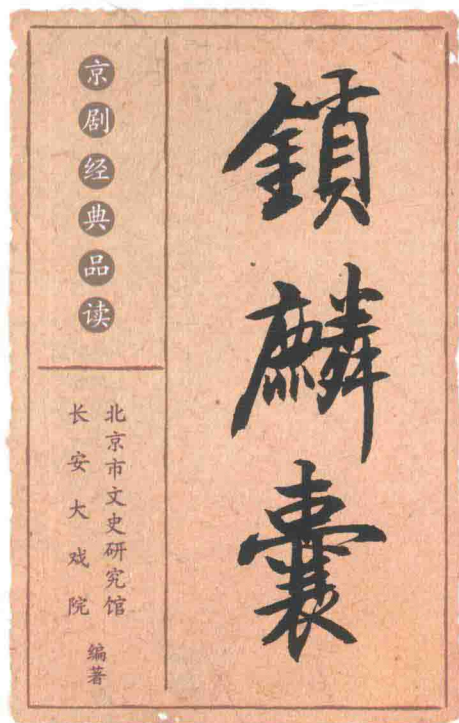 鎖麟囊
京剧经典品读
北京市文史研究馆
长安大戏院
编著